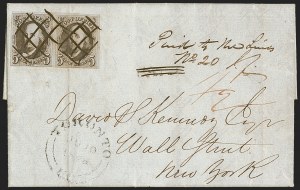 5 5 5 5
Paid to the Lines
No 20
David S Kennedy Esqr
Wall Street
New York
TORONTO